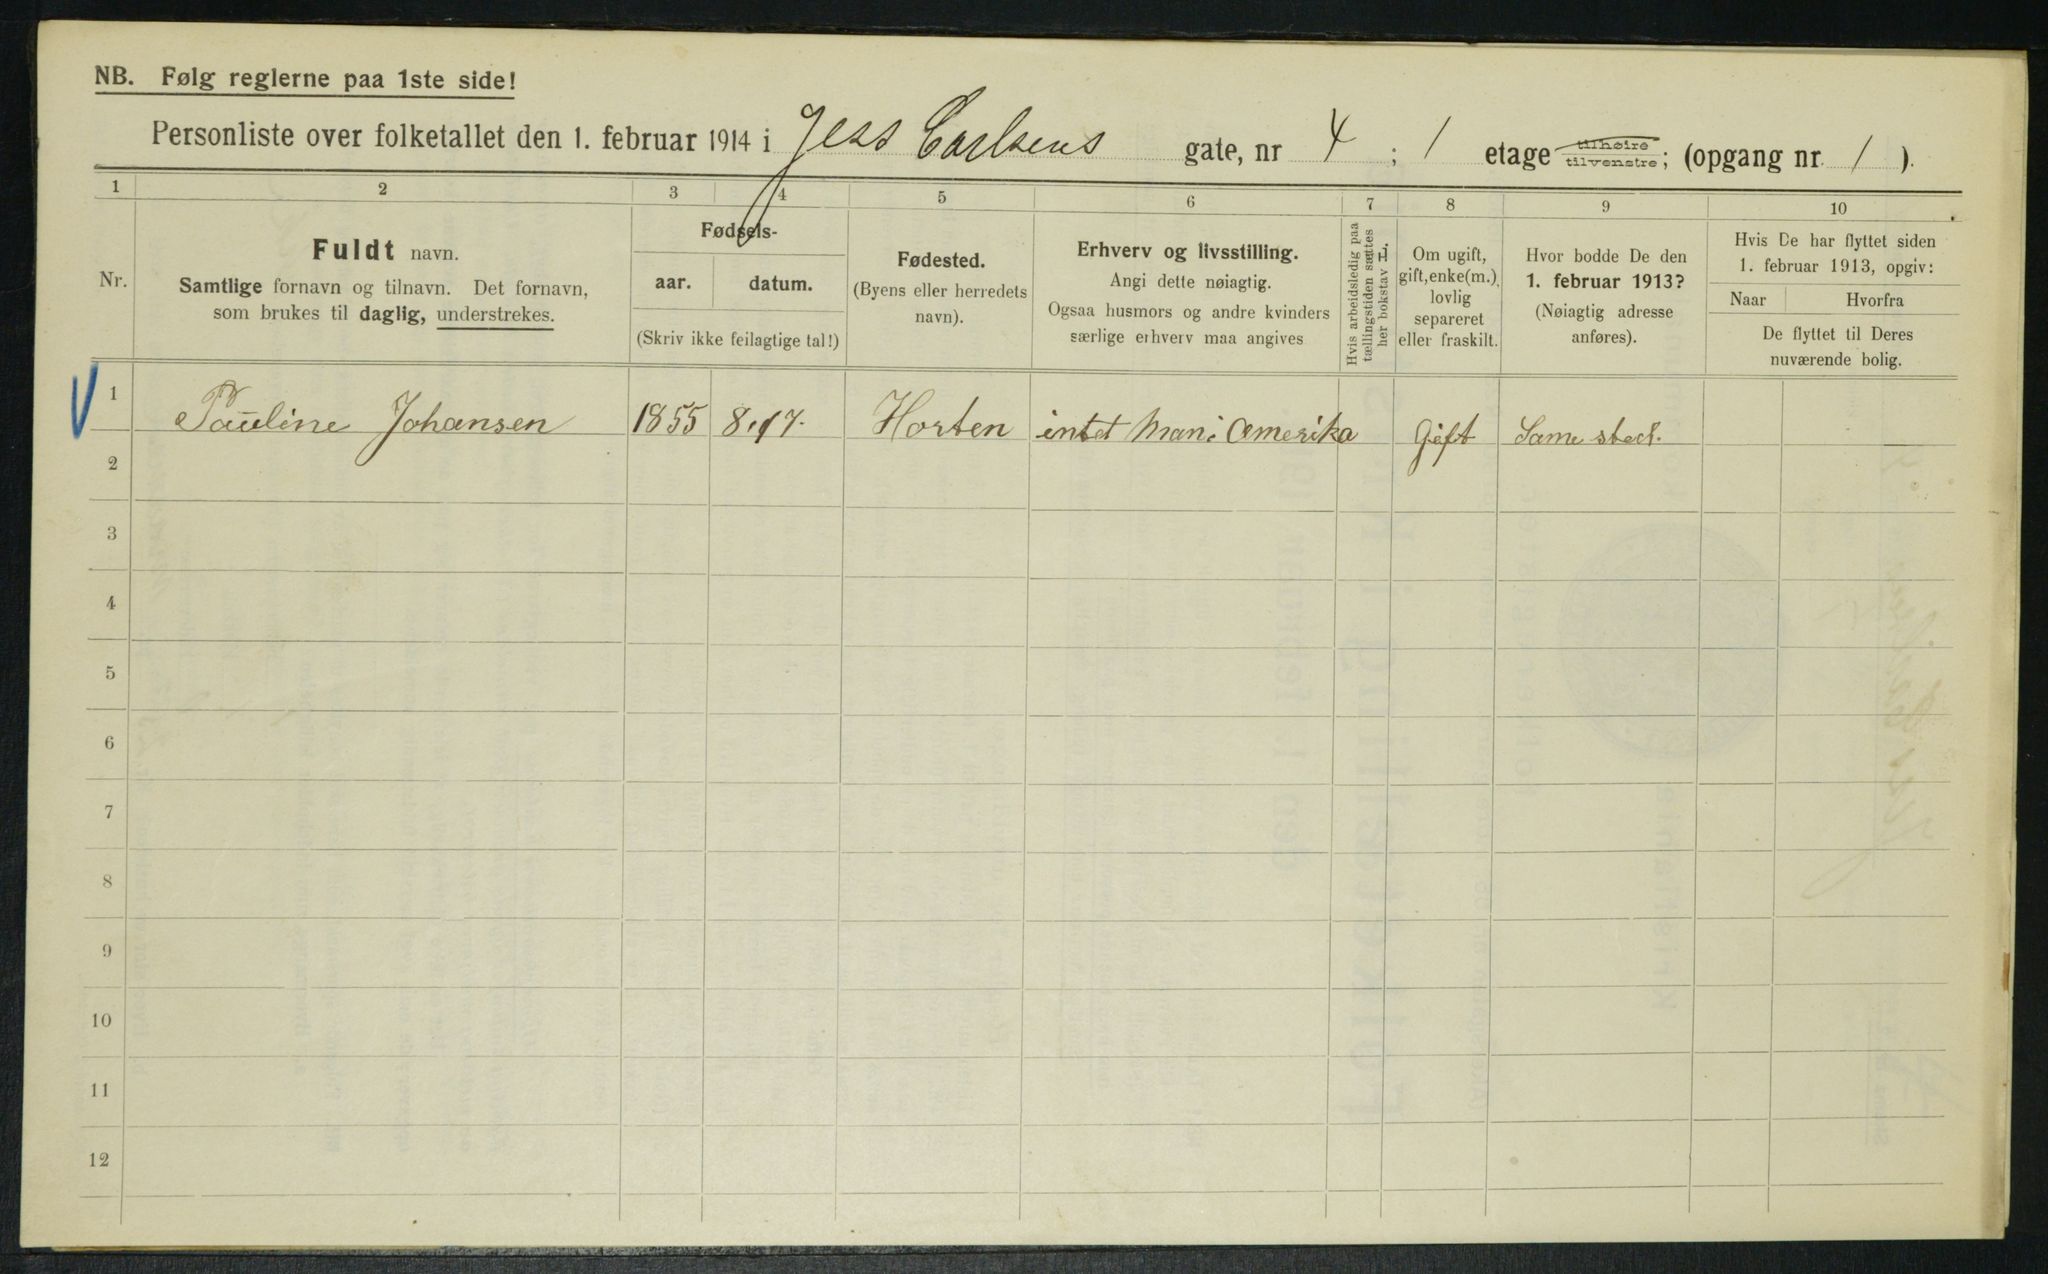 NB. Følg reglerne paa 1ste side!
Personliste over folketallet den 1. februar 1914 i Jess Carlsens gate, nr 4; 1 etage tilhøire tilvenstre; (opgang nr. 1).
1 2 3 4 5 6 7 8 9 10
Nr.
Fuldt navn.
Samtlige fornavn og tilnavn. Det fornavn,
som brukes til daglig, understrekes.
Fødsels-
aar. datum.
(Skriv ikke feilagtige tal!)
Fødested.
(Byens eller herredets
navn).
Erhverv og livsstilling.
Angi dette nøiagtig.
Ogsaa husmors og andre kvinders
særlige erhverv maa angives
Hvis arbeidsledig paa
tællingstiden sættes
her bokstav L.
Om ugift,
gift, enke(m.),
lovlig
separeret
eller fraskilt.
Hvor bodde De den
1. februar 1913?
(Nøiagtig adresse
anføres).
Hvis De har flyttet siden
1. februar 1913, opgiv:
Naar Hvorfra
De flyttet til Deres
nuværende bolig.
1 Pauline Johansen 1855 Horten intet Man i Amerika Gift Samested.
2
3
4
5
6
7
8
9
10
11
12